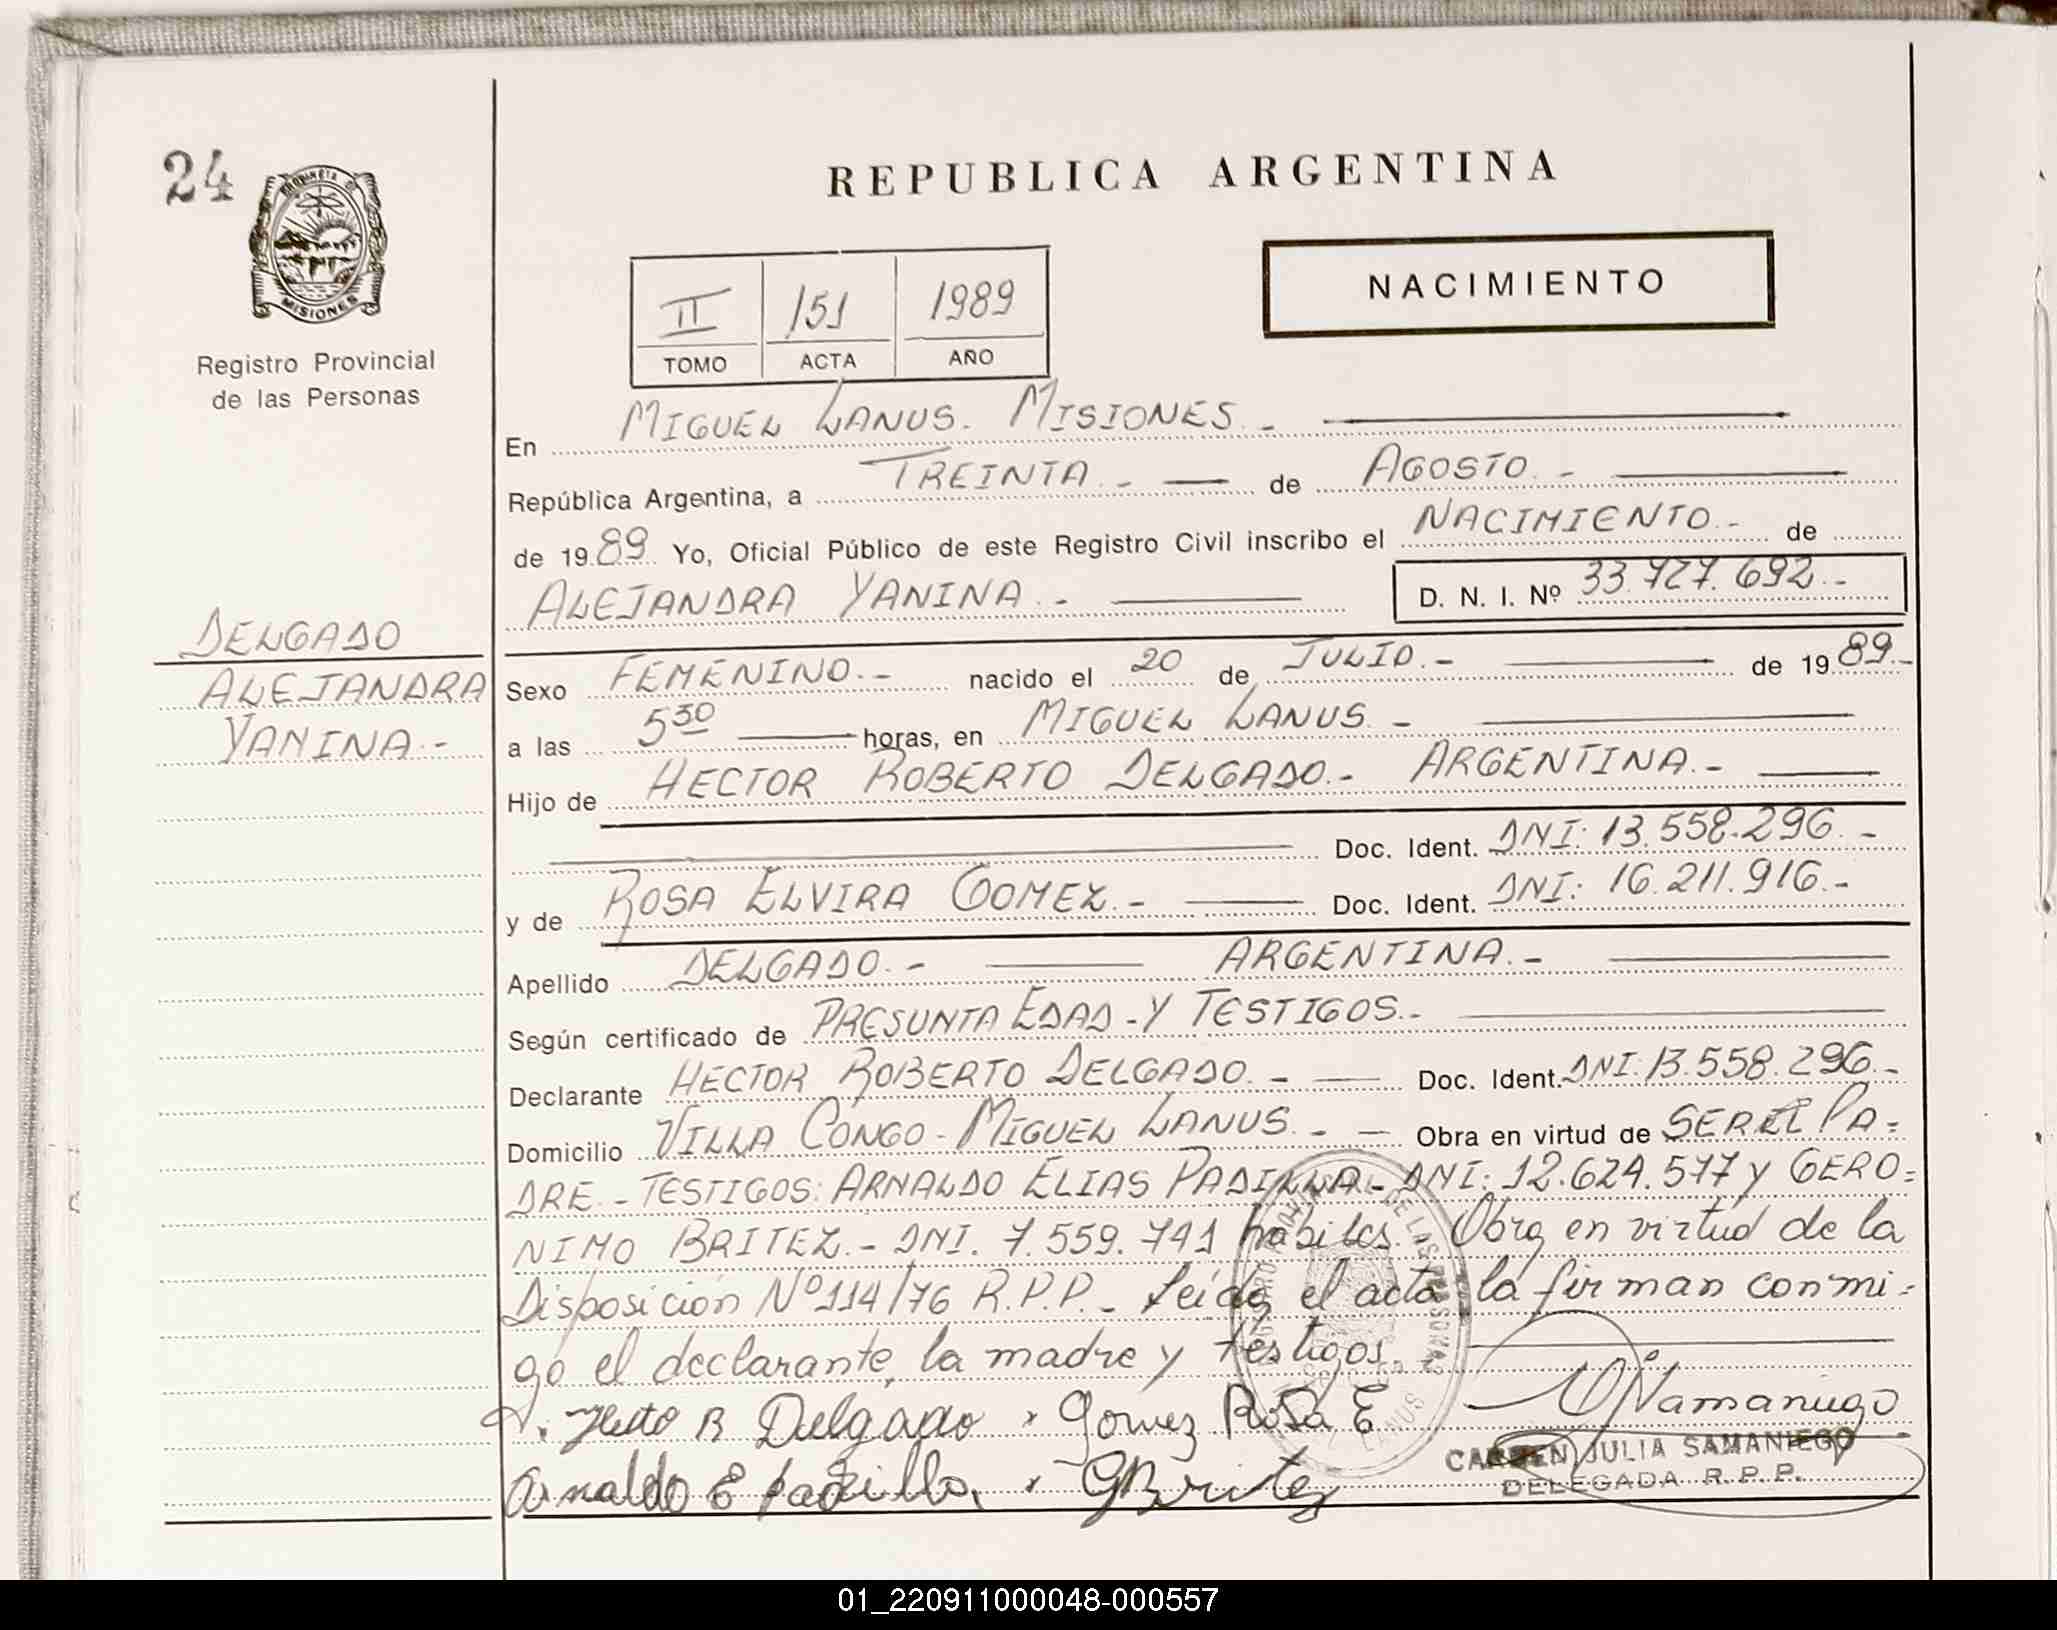 24
PROVINCIA DE
MISIONES
Registro Provincial
de las Personas
REPUBLICA ARGENTINA
NACIMIENTO
II 151 1989
TOMO ACTA AÑO
En MIGUEL LANUS. MISIONES.-
República Argentina, a TREINTA.- de AGOSTO.-
de 1989 Yo, Oficial Público de este Registro Civil inscribo el NACIMIENTO.- de
ALEJANDRA YANINA.- D. N. I. Nº 33.727.692.-
DELGADO
ALEJANDRA
YANINA.-
Sexo FEMENINO.- nacido el 20 de JULIO.- de 1989.-
a las 5 30 horas, en MIGUEL LANUS.-
Hijo de HECTOR ROBERTO DELGADO.- ARGENTINA.-
Doc. Ident. DNI: 13.558.296.-
y de ROSA ELVIRA GOMEZ.- Doc. Ident. DNI: 16.211.916.-
Apellido DELGADO.- ARGENTINA.-
Según certificado de PRESUNTA EDAD - Y TESTIGOS.-
Declarante HECTOR ROBERTO DELGADO.- Doc. Ident. DNI: 13.558.296.-
Domicilio VILLA CONGO - MIGUEL LANUS.- Obra en virtud de SER EL PA=
DRE.- TESTIGOS: ARNALDO ELIAS PADILLA - DNI: 12.624.577 y GERO=
NIMO BRITEZ.- DNI. 7.559.741 habiles.- Obra en virtud de la
Disposición Nº 114/76 R.P.P.- Leída el acta la firman conmi=
go el declarante, la madre y testigos.
Hecto R Delgado x Gomez Rosa E
Arnaldo E Padilla x GBritez
Samaniego
CARMEN JULIA SAMANIEGO
DELEGADA R.P.P.
01_220911000048-000557